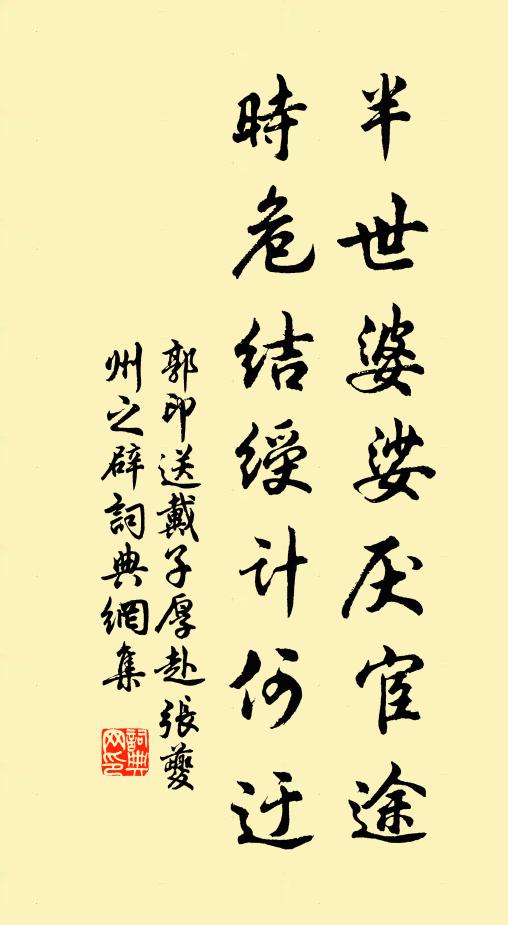 半世婆娑厌宦途
時危結綬计何迂
郭印送戴子厚赴張夔
州之辟詞典網集
詞典网印